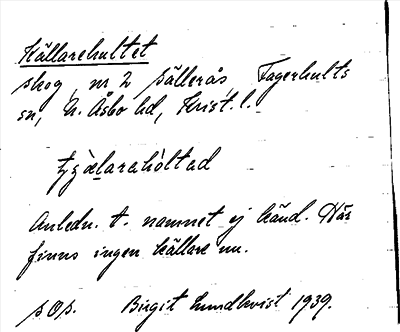 Källarehultet
skog, nr 2 Sällerås, Fagerhults
sn, N. Åsbo hd, Krist. l.
Anledn. t. namnet ej känd. Här
finns ingen källare nu.
s Os. Birgit Lundkvist 1939.